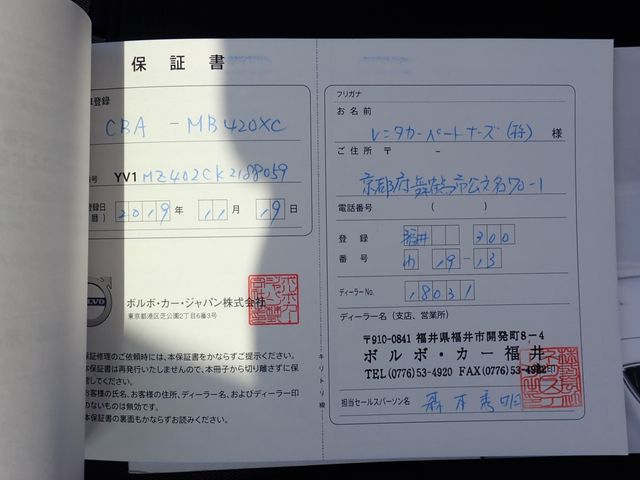 保証書
登録
CBA - MB420XC
番号
YV1 MZ402CK2188059
登録日
2019年 11月 19日
VOLVO
ボルボ・カー・ジャパン株式会社
東京都港区芝公園2丁目6番3号
保証修理のご依頼時には、本保証書をかならずご提示ください。
本保証書は再発行いたしませんので、本冊子から切り離さずに保
管してください。
お客様の氏名、お客様の住所、ディーラー名、およびディーラー印
のないものは無効です。
本保証書の裏面もかならずお読みください。
キリトリ線
フリガナ
お名前
レンタカーパートナーズ(株) 様
ご住所 〒 -
京都府舞鶴市公文名70-1
電話番号 ( )
登録 福井 300
番号 わ 19-13
ディーラーNo. 18031
ディーラー名(支店、営業所)
〒910-0841 福井県福井市開発町8-4
ボルボ・カー福井
TEL(0776)53-4920 FAX(0776)53-4922
担当セールスパーソン名